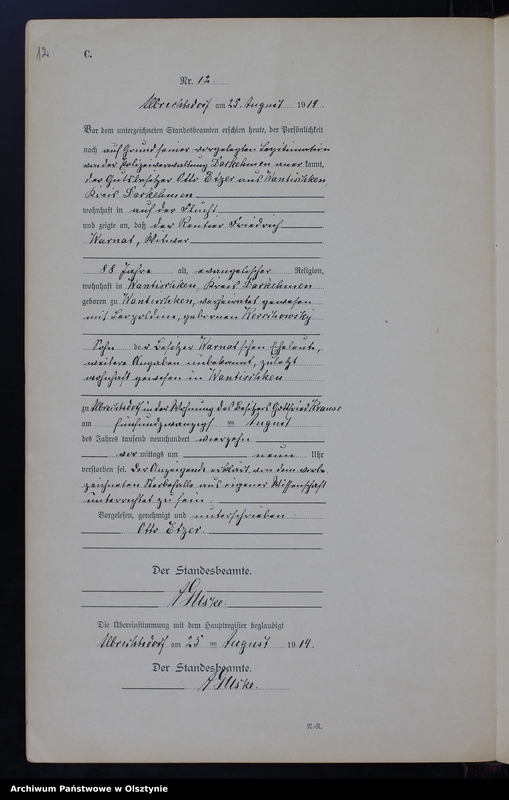 12.
C.
Nr. 12.
Albrechtsdorf am 25. August 1914.
Vor dem unterzeichneten Standesbeamten erschien heute, der Persönlichkeit
nach auf Grund seiner vorgelegten Legitimation
von der Polizeiverwaltung Darkehmen anerkannt,
der Gutsbesitzer Otto Etzer aus Wantischken,
Kreis Darkehmen
wohnhaft in auf der Flucht
und zeigte an, daß der Rentier Friedrich
Warnat, Witwer
88 Jahre alt, evangelischer Religion,
wohnhaft in Wantischken, Kreis Darkehmen
geboren zu Wantischken, verheiratet gewesen
mit Leopoldine, geborenen
Sohn der Besitzer Warnat'schen Eheleute,
weitere Angaben unbekannt, zuletzt
wohnhaft gewesen in Wantischken
zu Albrechtsdorf in der Wohnung des Besitzers Gottfried Krause
am fünfundzwanzigsten August
des Jahres tausend neunhundert vierzehn
vor mittags um neun Uhr
verstorben sei. Der Anzeigende erklärt, von dem vorbe-
zeichneten Sterbefalle aus eigener Wissenschaft
unterrichtet zu sein.
Vorgelesen, genehmigt und unterschrieben
Otto Etzer.
Der Standesbeamte.
Die Übereinstimmung mit dem Hauptregister beglaubigt
Albrechtsdorf am 25 ten August 1914.
Der Standesbeamte.
N.-R.
Archiwum Państwowe w Olsztynie